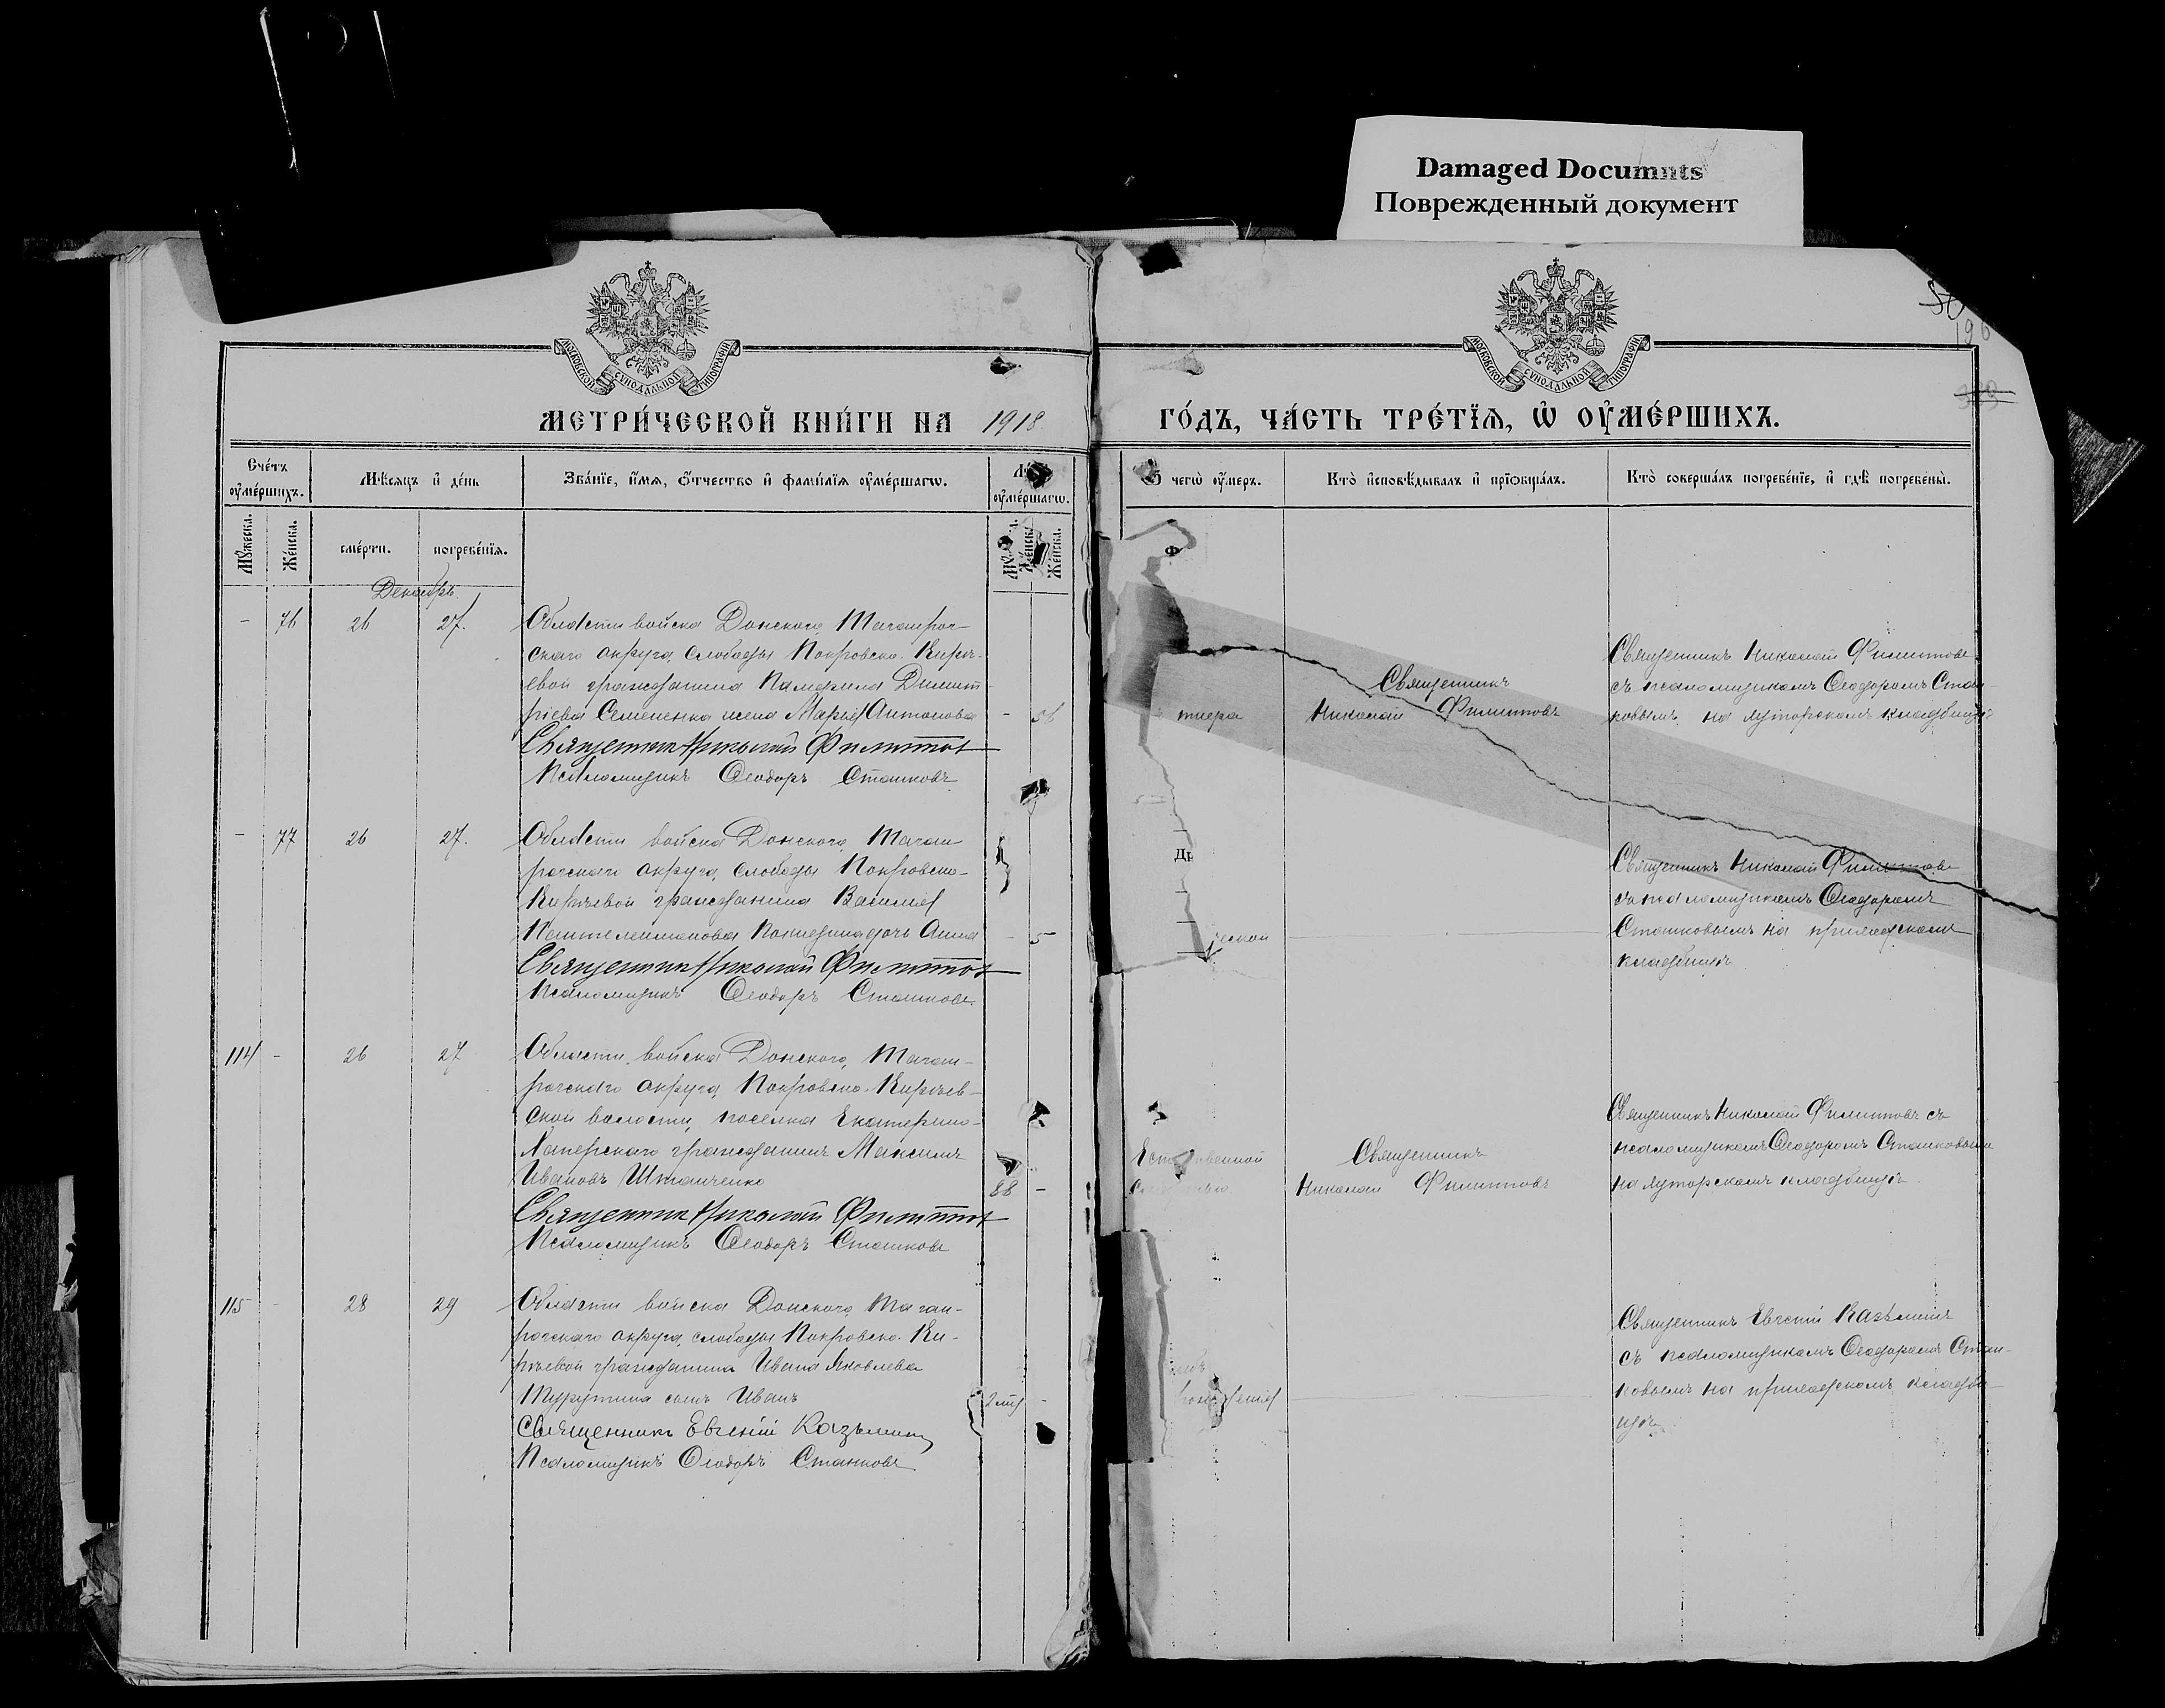 Damaged Documnts
Поврежденный документ
МОСКОВСКОЙ СѴНОДАЛЬНОЙ ТИПОГРАФІИ
МОСКОВСКОЙ СѴНОДАЛЬНОЙ ТИПОГРАФІИ
МЕТРИ́ЧЕСКОЙ КНИ́ГИ НА 1918 ГО́ДЪ, ЧА́СТЬ ТРЕ́ТЇѦ, Ѡ҆ ОУ҆МЕ́РШИХЪ.
Сче́тъ оу҆ме́ршихъ.
Мѣ́сяцъ и҆ де́нь
Зва́нїе, и҆́мѧ, ѻ҆́тчество и҆ фами́лїѧ оу҆ме́ршагѡ.
оу҆ме́ршагѡ.
чегѡ̀ оу҆́меръ.
Кто̀ и҆сповѣ́дывалъ и҆ прїѡбща́лъ.
Кто̀ соверша́лъ погребе́нїе, и҆ гдѣ̀ погребены̀.
Мꙋ́жеска.
Же́нска.
сме́рти.
погребе́нїѧ.
Же́нска.
Декабрь.
- 76 26 27.
Области войска Донского, Таганрог-
скаго округа, слободы Покровско-Кирѣ-
евой гражданина Памфила Димит-
ріева Семененка жена Марія Антонова
Священник Николай Филиппов
Псаломщикъ Ѳеодоръ Сташковъ
Священникъ
Николай Филипповъ
Священникъ Николай Филипповъ
съ псаломщикомъ Ѳеодоромъ Сташ-
ковымъ, на хуторскомъ кладбищѣ
- 77 26 27.
Области войска Донского, Таган-
рогскаго округа, слободы Покровско-
Кирѣевой гражданина Василія
Пантелеимонова дочь Анна
- 5
Священник Николай Филиппов
Псаломщикъ Ѳеодоръ Сташковъ
Священникъ Николай Филипповъ
съ псаломщикомъ Ѳеодоромъ
Сташковымъ на приходскомъ
кладбищѣ
114 - 26 27
Области войска Донского, Таган-
рогскаго округа, Покровско-Кирѣев-
ской волости, поселка Екатерино-
Хаперскаго гражданинъ Максимъ
Ивановъ Штанченко
88 -
Священник Николай Филиппов
Псаломщикъ Ѳеодоръ Сташковъ
Священникъ
Николай Филипповъ
Священникъ Николай Филипповъ съ
псаломщикомъ Ѳеодоромъ Сташковымъ
на хуторскомъ кладбищѣ
115 - 28 29
Области войска Донского, Таган-
рогскаго округа, слободы Покровско-Ки-
рѣевой гражданина Ивана Яковлева
сынъ Иванъ
Священникъ Евгеній Казьминъ
Псаломщикъ Ѳеодоръ Сташковъ
Священникъ Евгеній Казьминъ
съ псаломщикомъ Ѳеодоромъ Сташ-
ковымъ на приходскомъ кладби-
щѣ